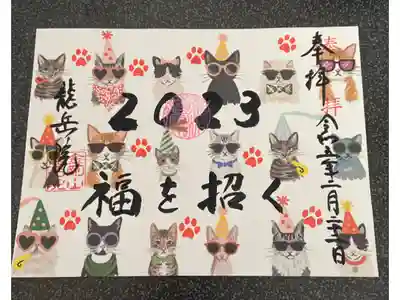 奉拝
令和五年二月二十二日
2023
福を招く